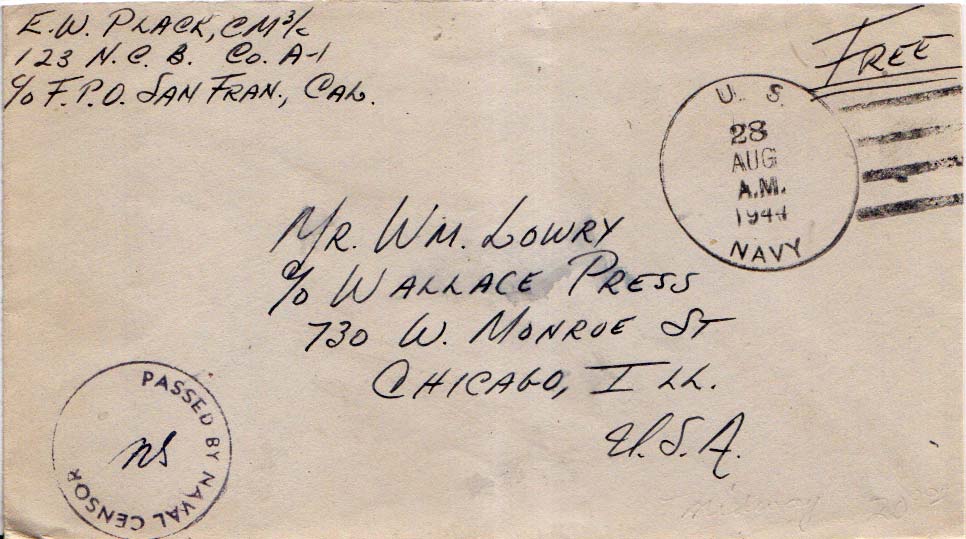 E. W. PLACK, CM 3/c
123 N. C. B. Co. A-1
c/o F. P. O. SAN FRAN., CAL.
FREE
U. S.
28
AUG
A.M.
1944
NAVY
MR. WM. LOWRY
c/o WALLACE PRESS
730 W. MONROE ST
CHICAGO, ILL.
U. S. A.
PASSED BY NAVAL CENSOR
midway